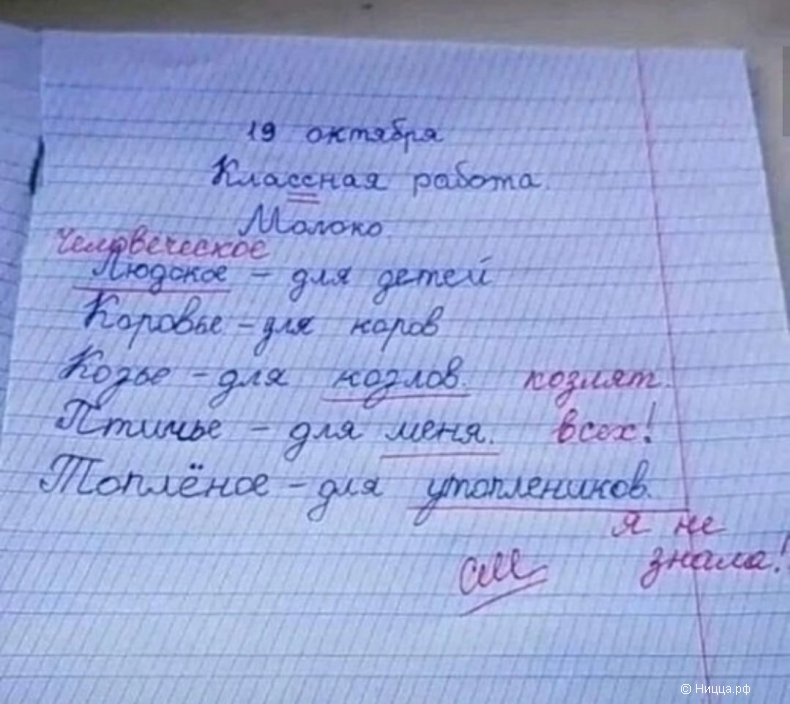 19 октября
Классная работа.
Молоко.
Человеческое
Людское – для детей
Коровье – для коров
Козье – для козлов. козлят.
Птичье – для меня. всех!
Топлёное – для утоплеников.
я не
см знала!
© Ницца.рф